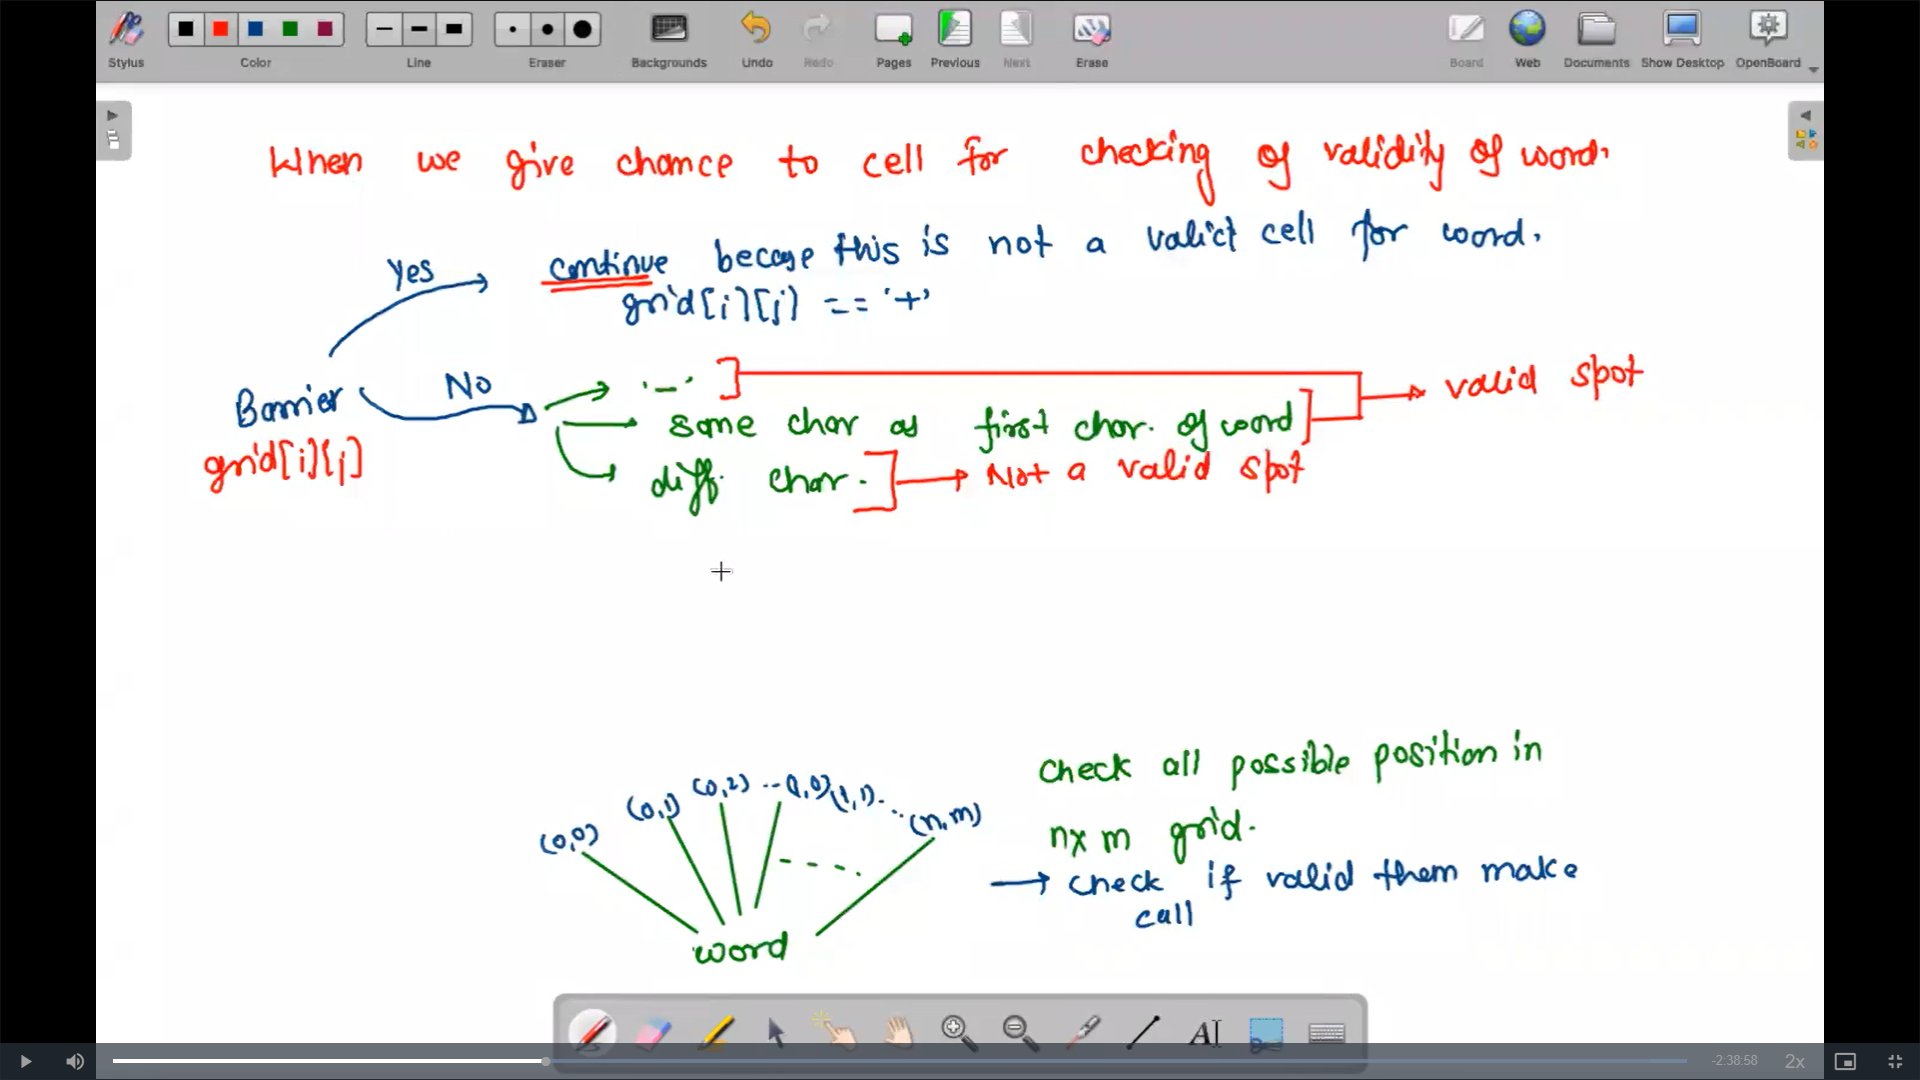 Stylus Color Line Eraser Backgrounds Undo Redo Pages Previous Next Erase Board Web Documents Show Desktop OpenBoard
When we give chance to cell for checking of validity of word.
Yes continue becase this is not a valid cell for word.
grid[i][j] == '+'
Barrier No '-' valid spot
same char as first char. of word
grid[i][j] diff. char. Not a valid spot
(0,0) (0,1) (0,2) -- (1,0) (1,1) . .. (n,m)
check all possible position in
nxm grid.
→ check if valid them make
call
word
AI
-2:38:58 2x